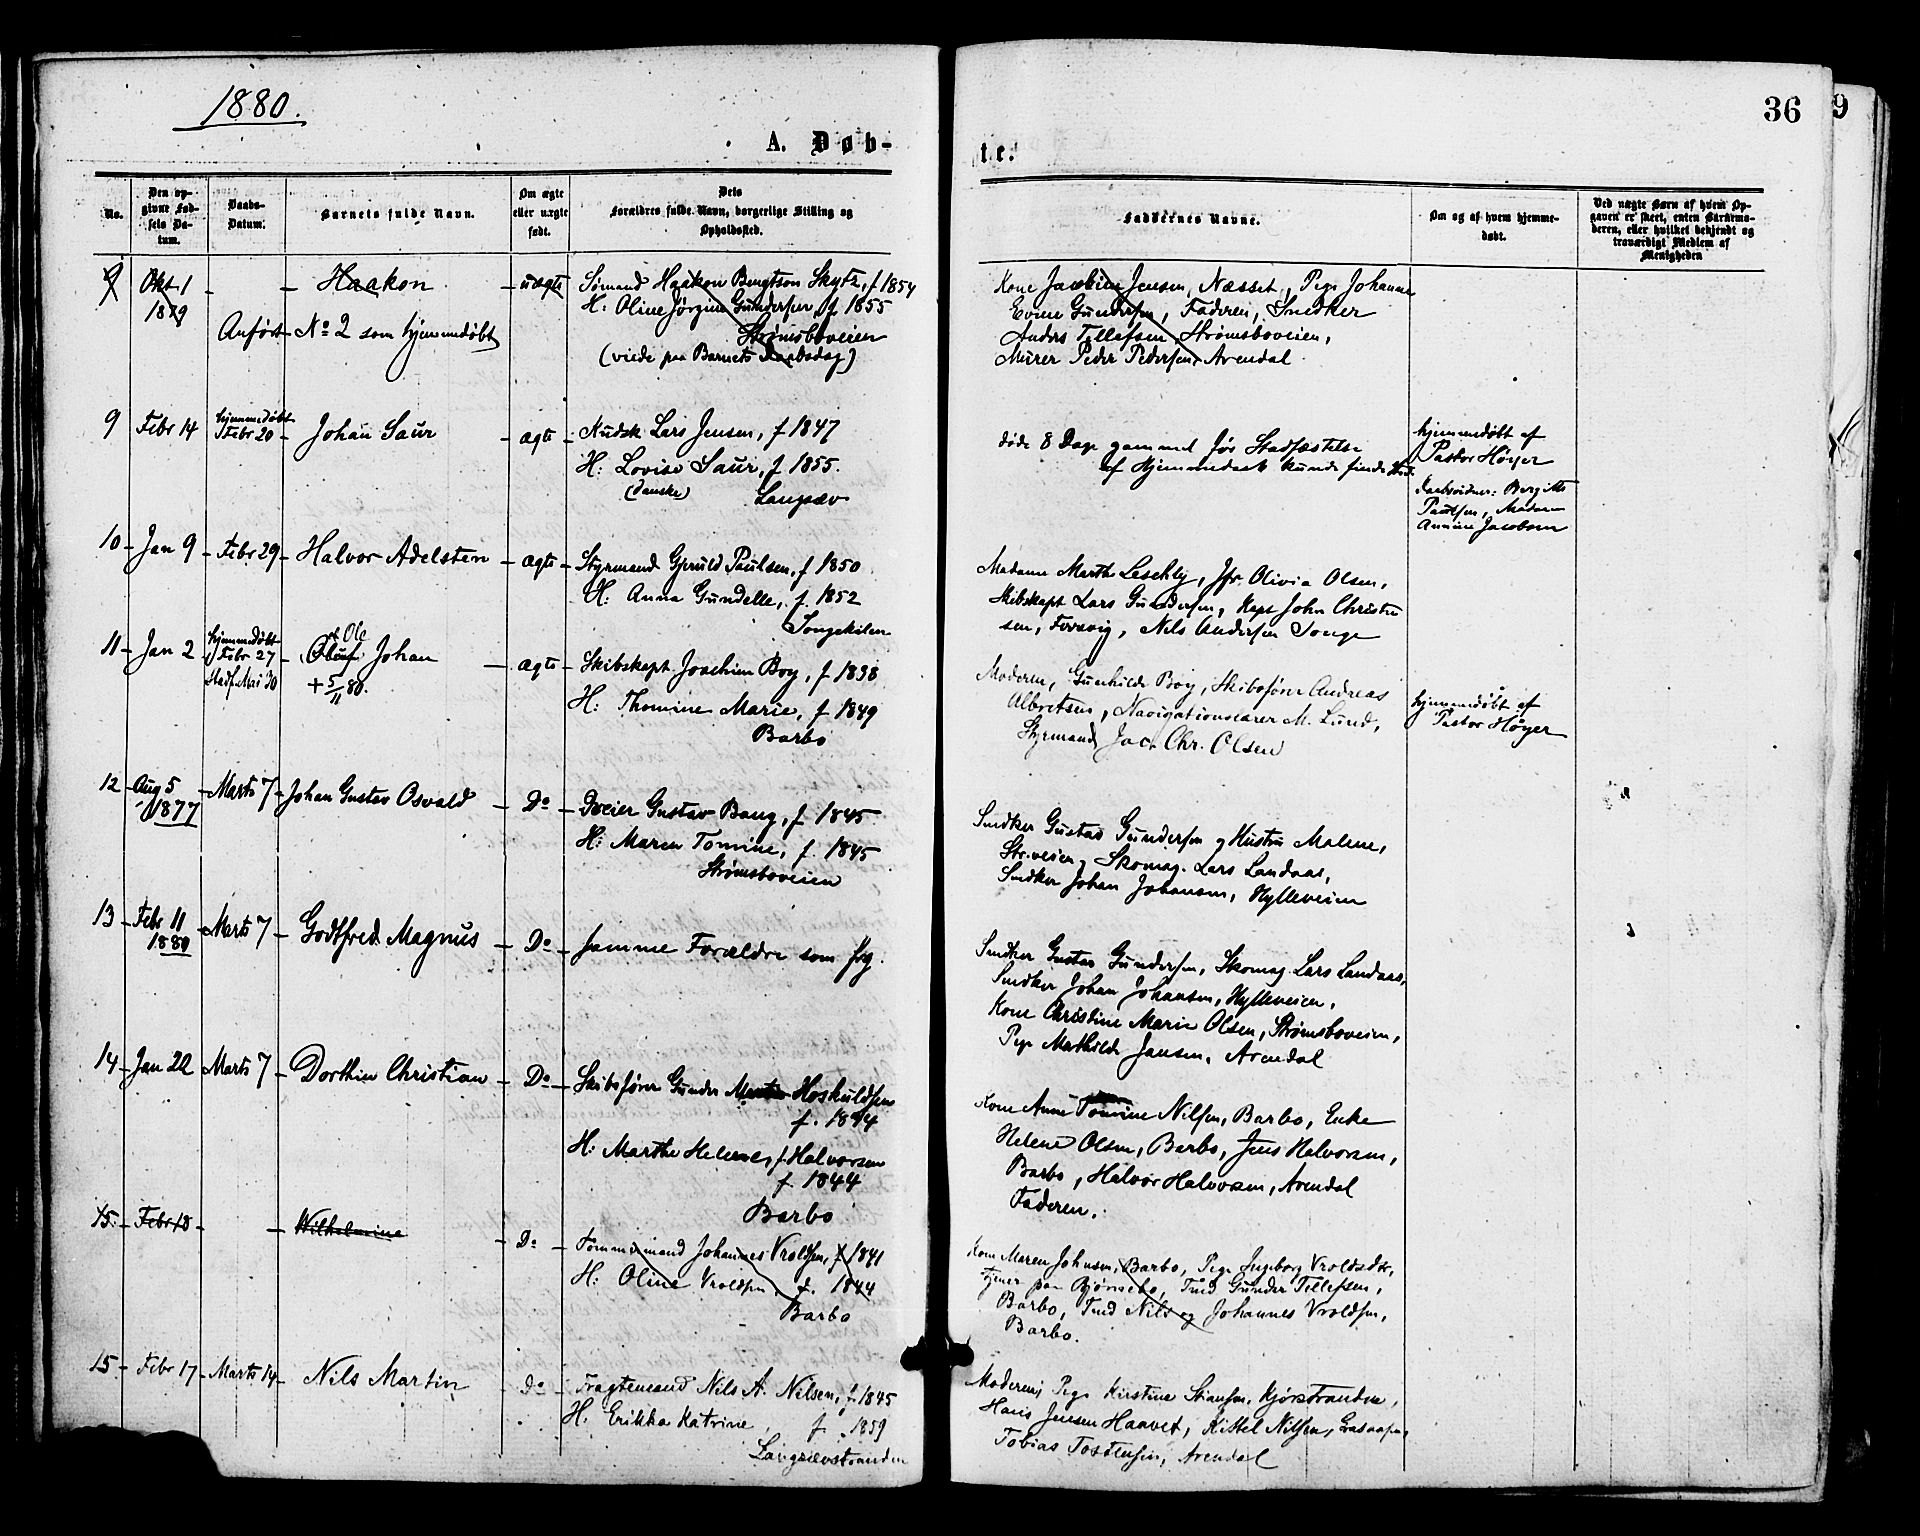 1880.
36
9
A. Døb-
te.
No.
Den op-
givne Fød-
sels Da-
tum.
Daabs-
Datum.
Barnets fulde Navn.
Om ægte
eller uægte
født.
Dets
Forældres fulde Navn, borgerlige Stilling og
Opholdssted.
Faddernes Navne.
Om og af hvem hjemme-
døbt.
Ved uægte Børn af hvem Op-
gaven er skeet, enten Barnemo-
deren, eller hvilket bekjendt og
troværdigt Medlem af
Menigheden
9 Okt 1 - - Haakon - uægte Sømand Haakon Bengtson Skytz, f 1854
1879 H: Oline Jørgine Gundersen, f 1855
Anført No 2 som hjemmedøbt Strømsboveien
(viede paa Barnets Daabsdag)
Kone Jacobine Jensen, Næsset, Pige Johanne
Evine Gundersen, Faderen, Snedker
Anders Tellefsen Strømsboveien,
Murer Peder Pedersen, Arendal.
9 Febr 14 hjemmedøbt
Febr 20 - Johan Saur - ægte - Lars Jensen, f 1847
H: Lovise Saur, f 1855.
(danske) Langsæv
døde 8 Dage gammel før Stadfæstelse
af Hjemmedaab kunde finde Sted.
hjemmedøbt af
Pastor Høyer
Daabsvidner: Bergitte
Paulsen, Madam
Annine Jacobsen
10 - Jan 9 - Febr 29 - Halvor Adelsten - ægte - Styrmand Gjeruld Paulsen, f 1850
H: Anna Gundelle, f. 1852
Songekilen
Madame Marthe Leschly, Jfr. Olivia Olsen,
Skibskapt Lars Gundersen, Kapt John Christen
sen, Færvig, Nils Andersen Songe
11 - Jan 2 hjemmedøbt
Febr 27
Stadf. Mai 30 - Oluf Ole Johan - ægte - Skibskapt Joachim Boy, f 1838
+ 5/11 80.
H: Thomine Marie, f 1849
Barbo
Moderen, Gunhilde Boy, Skibsfører Andreas
Albretsen, Navigationslærer M. Lund,
Styrmand Jac. Chr. Olsen
hjemmedøbt af
Pastor Høyer
12 - Aug 5
1877 - Marts 7 - Johan Gustav Osvald - Do - Dreier Gustav Bang, f 1845
H: Maren Tomine, f. 1845
Strømsboveien
Snedker Gustav Gundersen og Hustru Malene,
Str.veien, Skomag. Lars Landaas,
Snedker Johan Johansen, Hylleveien
13 - Febr 11
1880 - Marts 7 - Godtfred Magnus - Do - samme Forældre som frg.
Snedker Gustav Gundersen, Skomag. Lars Landaas,
Snedker Johan Johansen, Hylleveien,
Kone Christine Marie Olsen, Strømsboveien,
Pige Mathilde Jansen, Arendal
14 - Jan 22 - Marts 7 - Dorthin Christian - Do - Skibsfører Gunder Hoskuldsen
f. 1844
H: Marthe Helene, f. Halvorsen
f. 1844
Barbo
Kone Anne Tomine Nilsen, Barbo, Enke
Helene Olsen, Barbo, Jens Halvorsen,
Barbo, Halvor Halvorsen, Arendal
Faderen.
15. Febr 18 - - Wilhelmine - Do - Tømmermand Johannes Vroldsen, f 1841
H: Oline Vroldsen, f. 1844
Barbo
Kone Maren Johnsen, Barbo, Pige Ingeborg Vroldsdtr,
tjener paa Bjørnebo, Tmd Gunder Tellefsen,
Barbo, Tmd Nils og Johannes Vroldsen,
Barbo.
15 - Febr 17 - Marts 14 - Nils Martin - Do - Fragtemand Nils A. Nilsen, f. 1845
H: Erikka Katrine, f. 1859
Langsævstranden
Moderen, Pige Kirstine Stiansen, Kjørstranden,
Hans Jensen Haavet, Kittel Nilsen,
Tobias Tostensen, Arendal